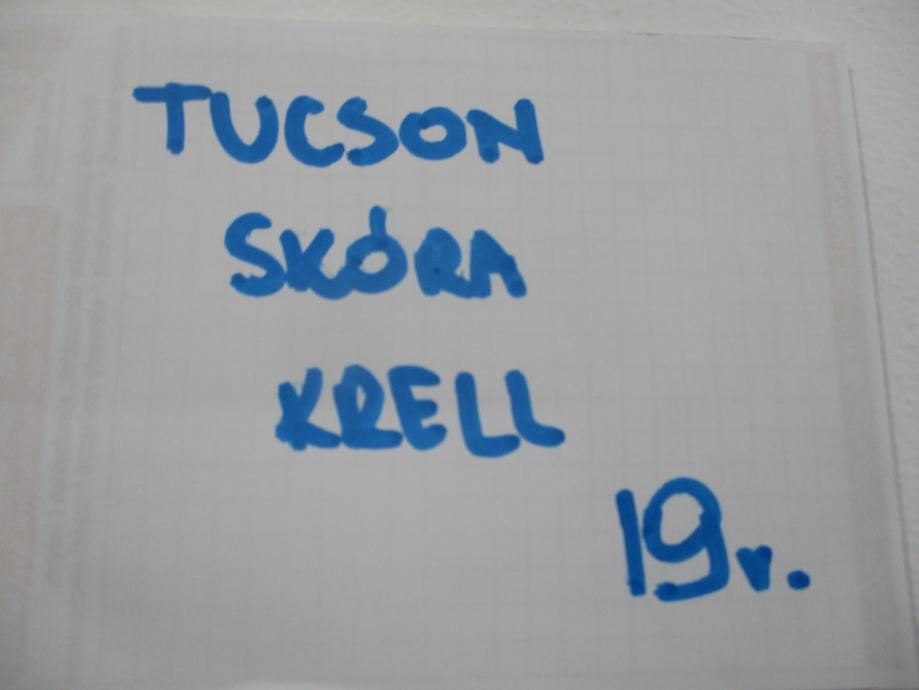 TUCSON
SKÓRA
KRELL
19r.